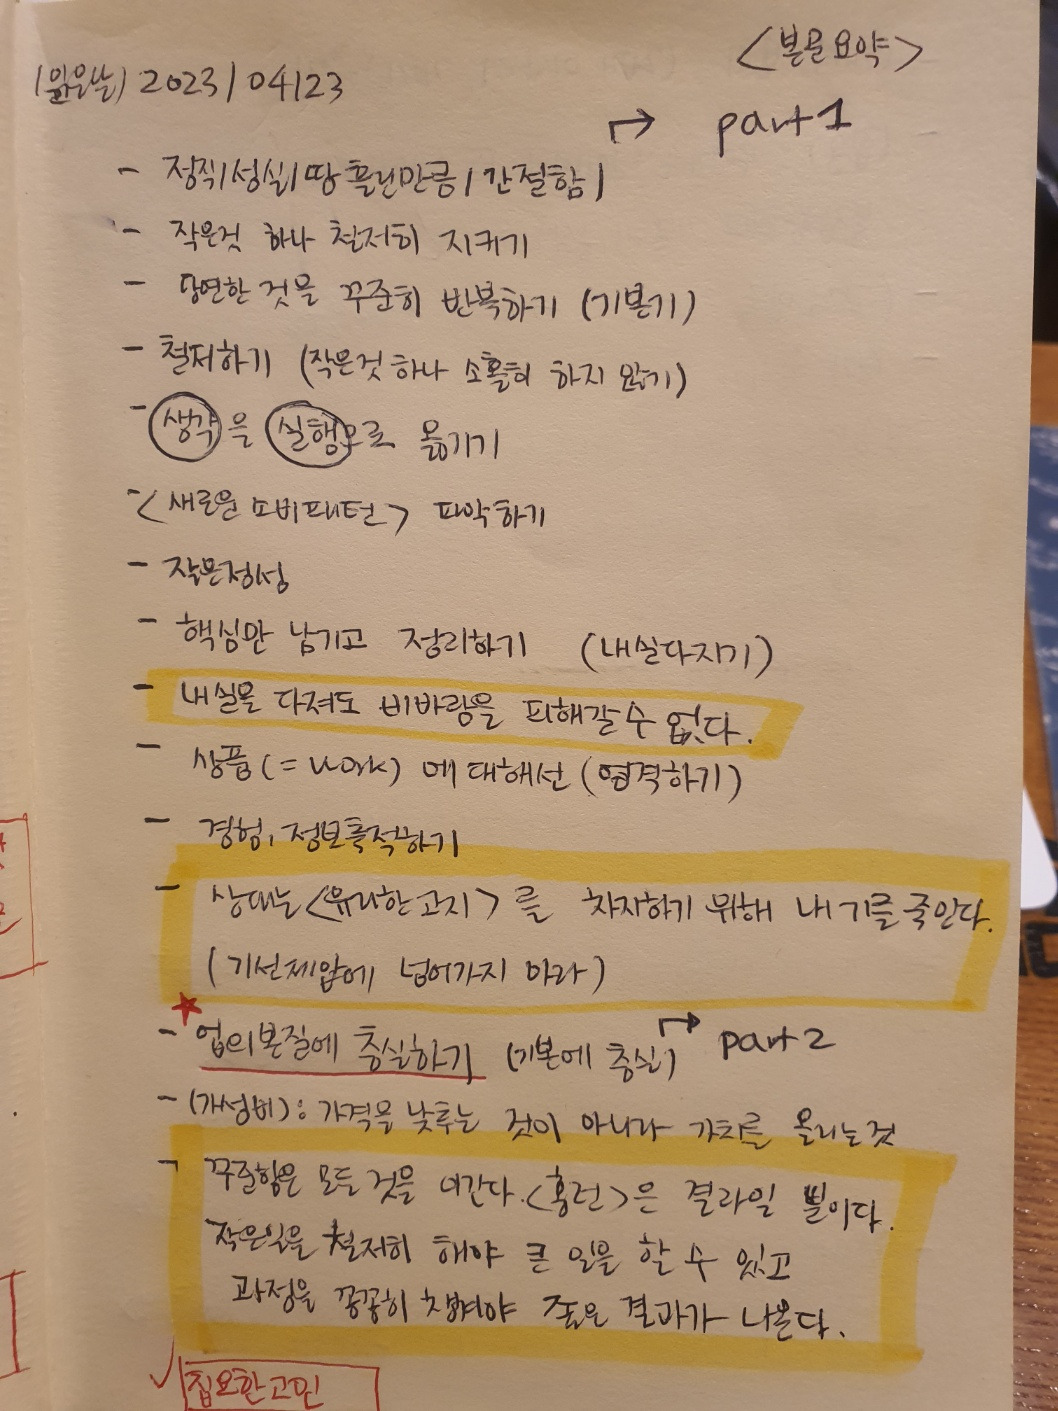 <본문요약>
(읽은날) 2023/04/23
part1
- 정직/성실/땀 흘린만큼/간절함/
- 작은것 하나 철저히 지키기
- 당연한 것을 꾸준히 반복하기 (기본기)
- 철저하기 (작은것 하나 소홀히 하지 않기)
- 생각을 실행으로 옮기기
- <새로운 소비패턴> 파악하기
- 작은정성
- 핵심만 남기고 정리하기 (내실다지기)
- 내실을 다져도 비바람을 피해갈 수 없다.
- 상품(=work)에 대해선 (엄격하기)
- 경험, 정보축적하기
- 상대는 <유리한고지>를 차지하기 위해 내 기를 죽인다.
(기선제압에 넘어가지 마라)
- 업의본질에 충실하기 (기본에 충실) part2
- (가성비): 가격을 낮추는 것이 아니라 가치를 올리는것
- 꾸준함은 모든 것을 이긴다. 은 결과일 뿐이다.
작은일을 철저히 해야 큰 일을 할 수 있고
과정을 꼼꼼히 챙겨야 좋은 결과가 나온다.
집요한고민